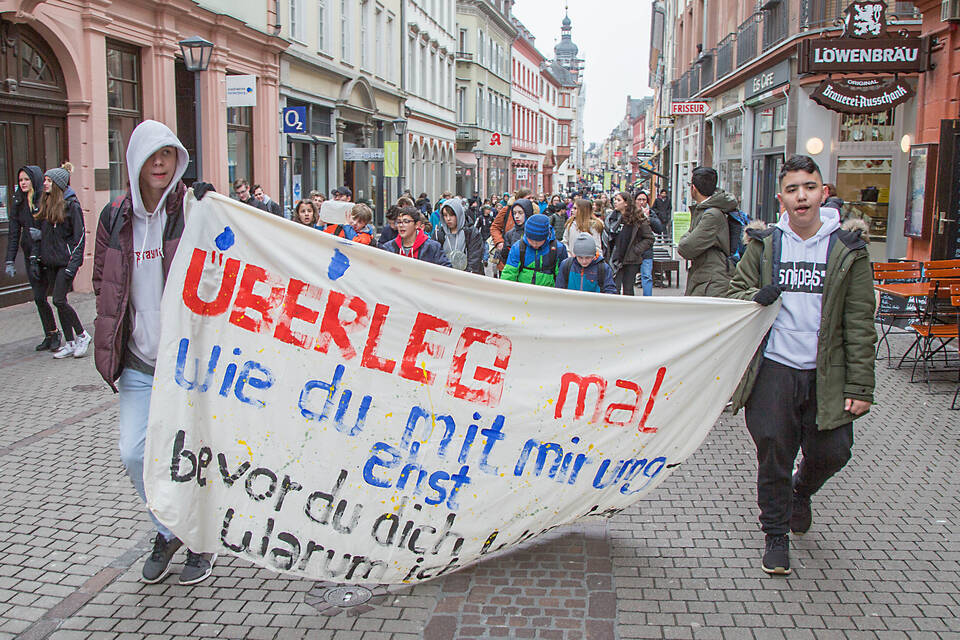 ÜBERLEG mal
Wie du mit mir umg-
ehst
bevor du dich
Warum ic
LÖWENBRÄU
ORIGINAL
Brauerei-Ausschank
FRISEUR
ES Café
O₂